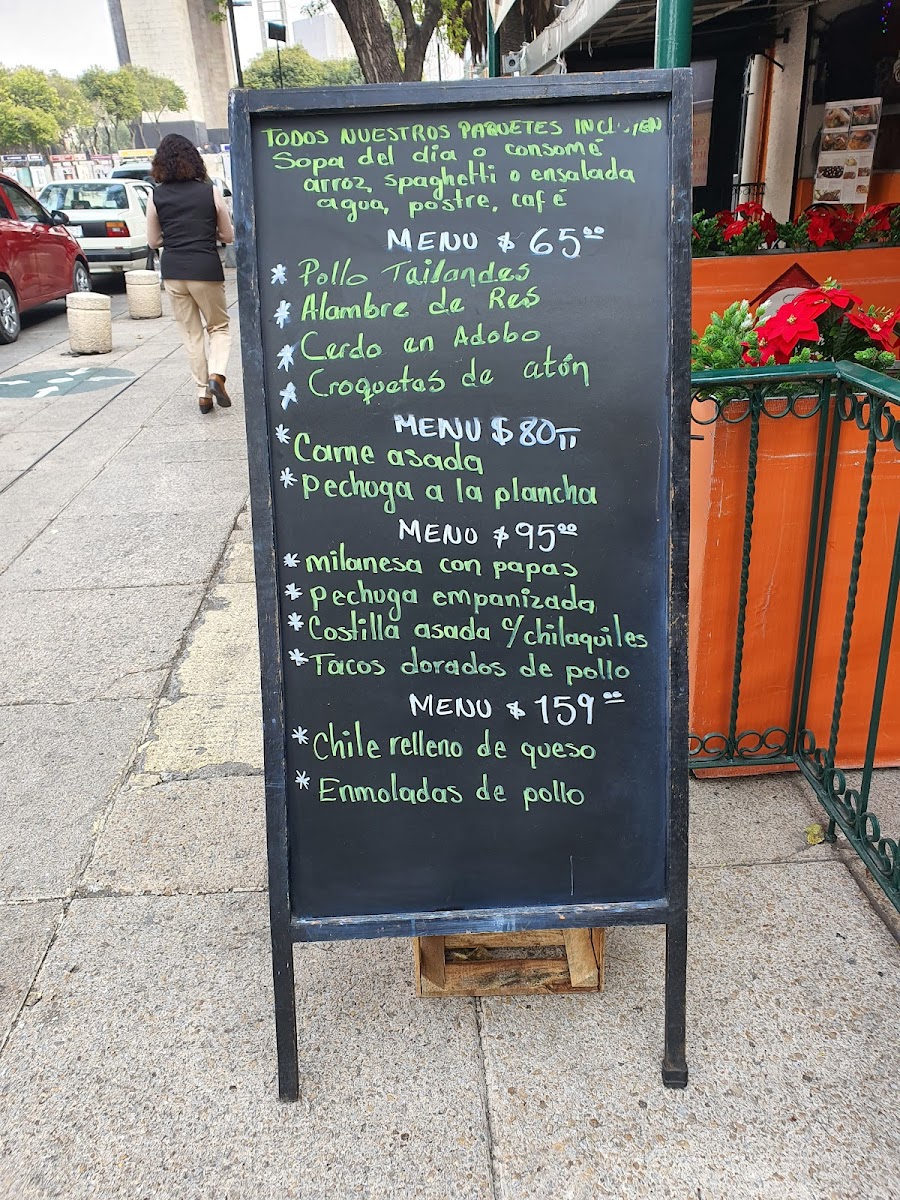 TODOS NUESTROS PAQUETES INCLUYEN
Sopa del dia o consomé
arroz, spaghetti o ensalada
agua, postre, café
MENU $ 65⁰⁰
* Pollo Tailandes
* Alambre de Res
* Cerdo en Adobo
* Croquetas de atún
MENU $ 80
* Carne asada
* pechuga a la plancha
MENU $ 95⁰⁰
* milanesa con papas
* pechuga empanizada
* Costilla asada c/chilaquiles
* Tacos dorados de pollo
MENU $ 159⁰⁰
* Chile relleno de queso
* Enmoladas de pollo